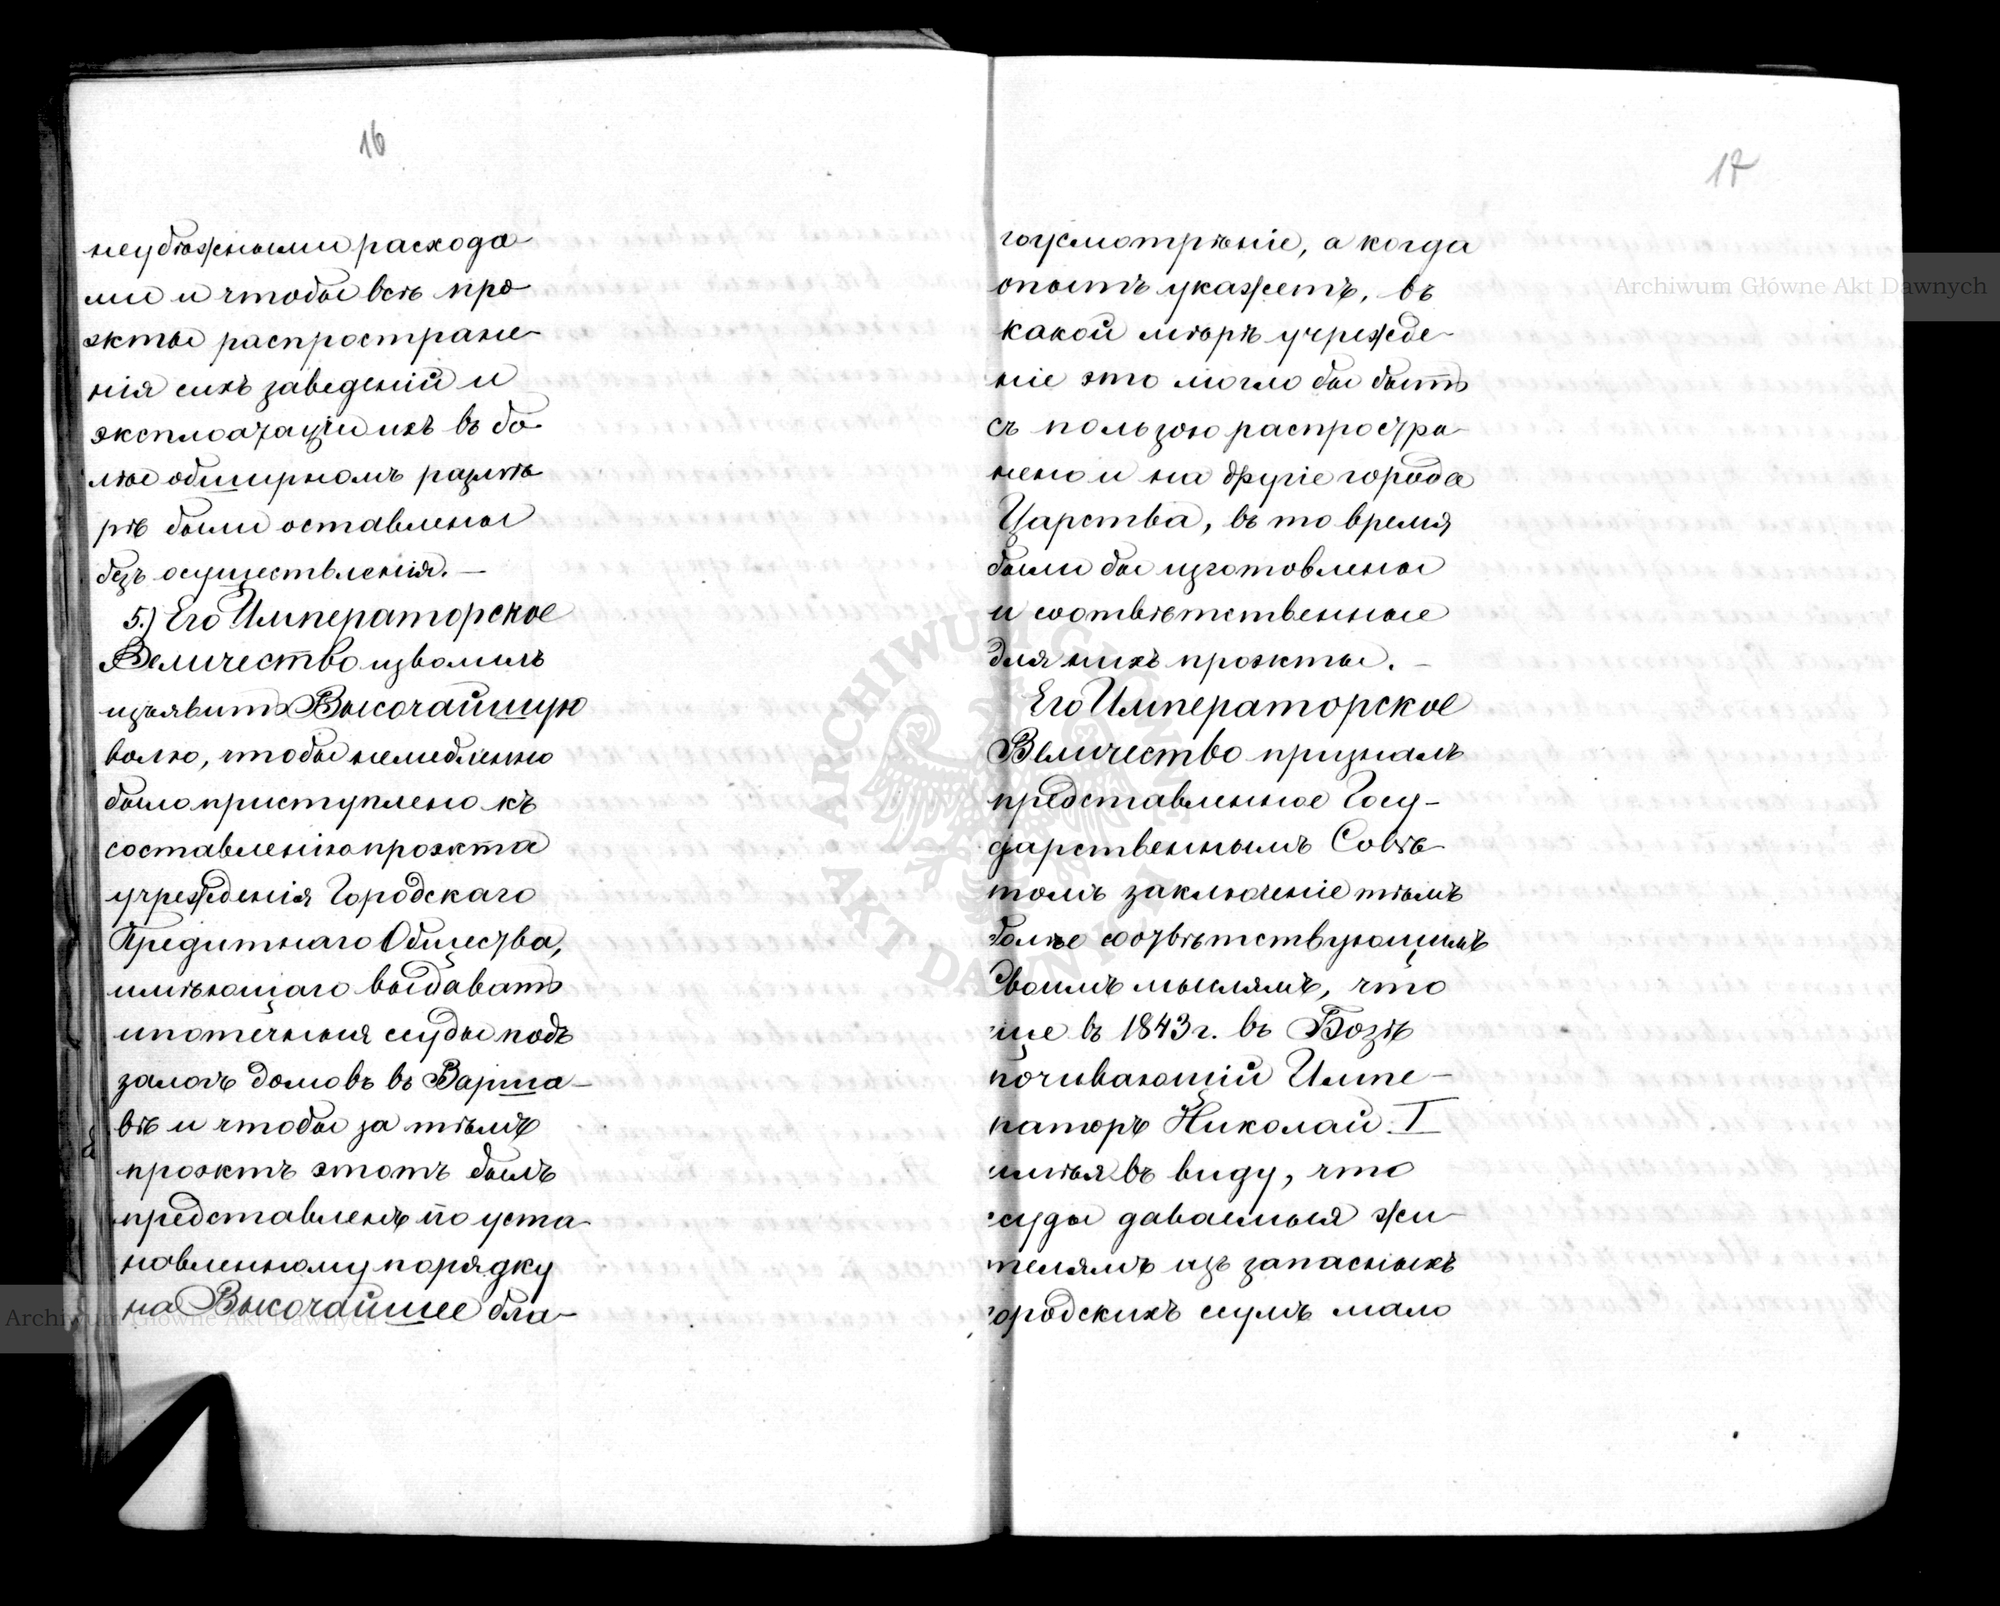 16
неубѣжными расхода-
ми и чтобы всѣ про-
экты распростране-
нія сихъ заведеній и
эксплоатаціи ихъ въ бо-
лѣе обширномъ размѣ-
рѣ были оставлены
безъ осуществленія. —
5.) Его Императорское
Величество изволилъ
изъявить Высочайшую
волю, чтобы немедленно
было приступлено къ
составленію проэкта
учрежденія Городскаго
Кредитнаго Общества,
имѣющаго выдавать
ипотечныя ссуды подъ
залогъ домовъ въ Варша-
вѣ и чтобы за тѣмъ
проэктъ этотъ былъ
представленъ по уста-
новленному порядку
на Высочайшее бла-
17
гоусмотрѣніе, а когда
опытъ укажетъ, въ
какой мѣрѣ учрежде-
ніе это могло бы быть
съ пользою распростра-
нено и на другіе города
Царства, въ то время
были бы изготовлены
и соотвѣтственные
для нихъ проэкты. —
Его Императорское
Величество призналъ
представленное Госу-
дарственнымъ Совѣ-
томъ заключеніе тѣмъ
болѣе соотвѣтствующимъ
Своимъ мыслямъ, что
еще въ 1843 г. въ Бозѣ
почивающій Импе-
раторъ Николай I
имѣя въ виду, что
ссуды даваемыя жи-
телямъ изъ запасныхъ
городскихъ суммъ мало
Archiwum Główne Akt Dawnych
Archiwum Główne Akt Dawnych
ARCHIWUM GŁÓWNE AKT DAWNYCH